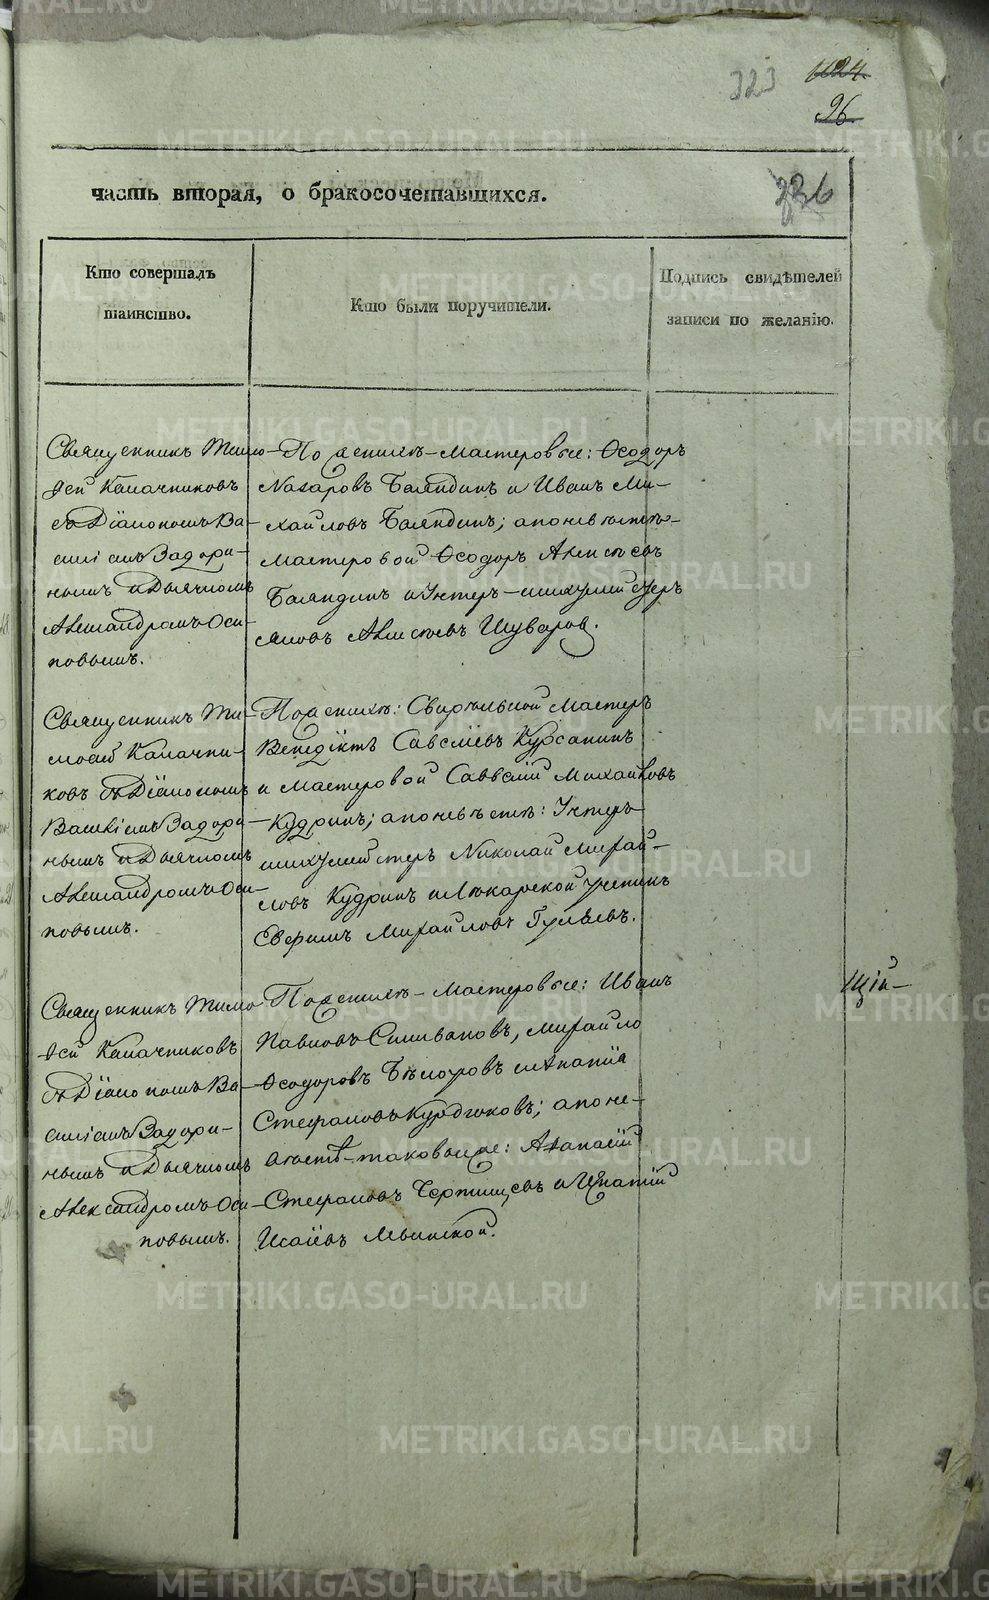 323
1024
26
236
часть вторая, о бракосочетавшихся.
Кто совершалъ
таинство.
Кто были поручители.
Подпись свидѣтелей
записи по желанію.
Священникъ Тимо-
ѳей Калачниковъ
съ Діакономъ Ва-
силіемъ Задори-
нымъ и Дьячкомъ
Александромъ Оси-
повымъ.
По женихѣ - мастеровые: Ѳеодоръ
Назаровъ Баландинъ и Иванъ Ми-
хайловъ Баландинъ; а по невѣстѣ -
мастеровой Ѳеодоръ Алексѣевъ
Баландинъ и Унтеръ-шихтмейстеръ
Алексѣевъ Шуваровъ.
Священникъ Ти-
моѳей Калачни-
ковъ съ Діакономъ
Василіемъ Задори-
нымъ и Дьячкомъ
Александромъ Оси-
повымъ.
По женихѣ: Свирѣльной Мастеръ
Венедіктъ Савеліевъ Курсанинъ
и мастеровой Савватій Михайловъ
Кудринъ; а по невѣстѣ: Унтеръ-
шихтмейстеръ Николай Михай-
ловъ Кудринъ и Лѣкарской ученикъ
Севериннъ Михайловъ Гуляевъ.
Священникъ Тимо-
ѳей Калачниковъ
съ Діакономъ Ва-
силіемъ Задори-
нымъ и Дьячкомъ
Александромъ Оси-
повымъ.
По женихѣ - мастеровые: Иванъ
Павловъ Селивановъ, Михайло
Ѳеодоровъ и
Стефановъ; а по не-
вѣстѣ - таковые же: Аѳанасій
Стефановъ Чертищевъ и Игнатій
Исаіевъ
щій-
METRIKI.GASO-URAL.RU